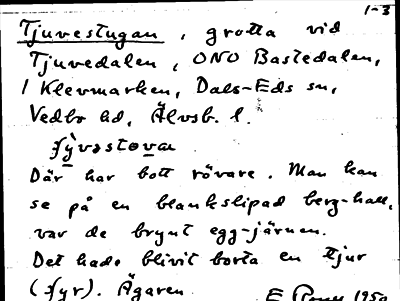 1-3
Tjuvestugan, grotta vid
Tjuvedalen, ONO Bastedalen,
1 Klevmarken, Dals-Eds sn,
Vedbo hd, Älvsb. l.
Där har bott rövare. Man kan
se på en blankslipad berg-hall,
var de brynt egg-järnen.
Det hade blivit borta en tjur
Ägaren